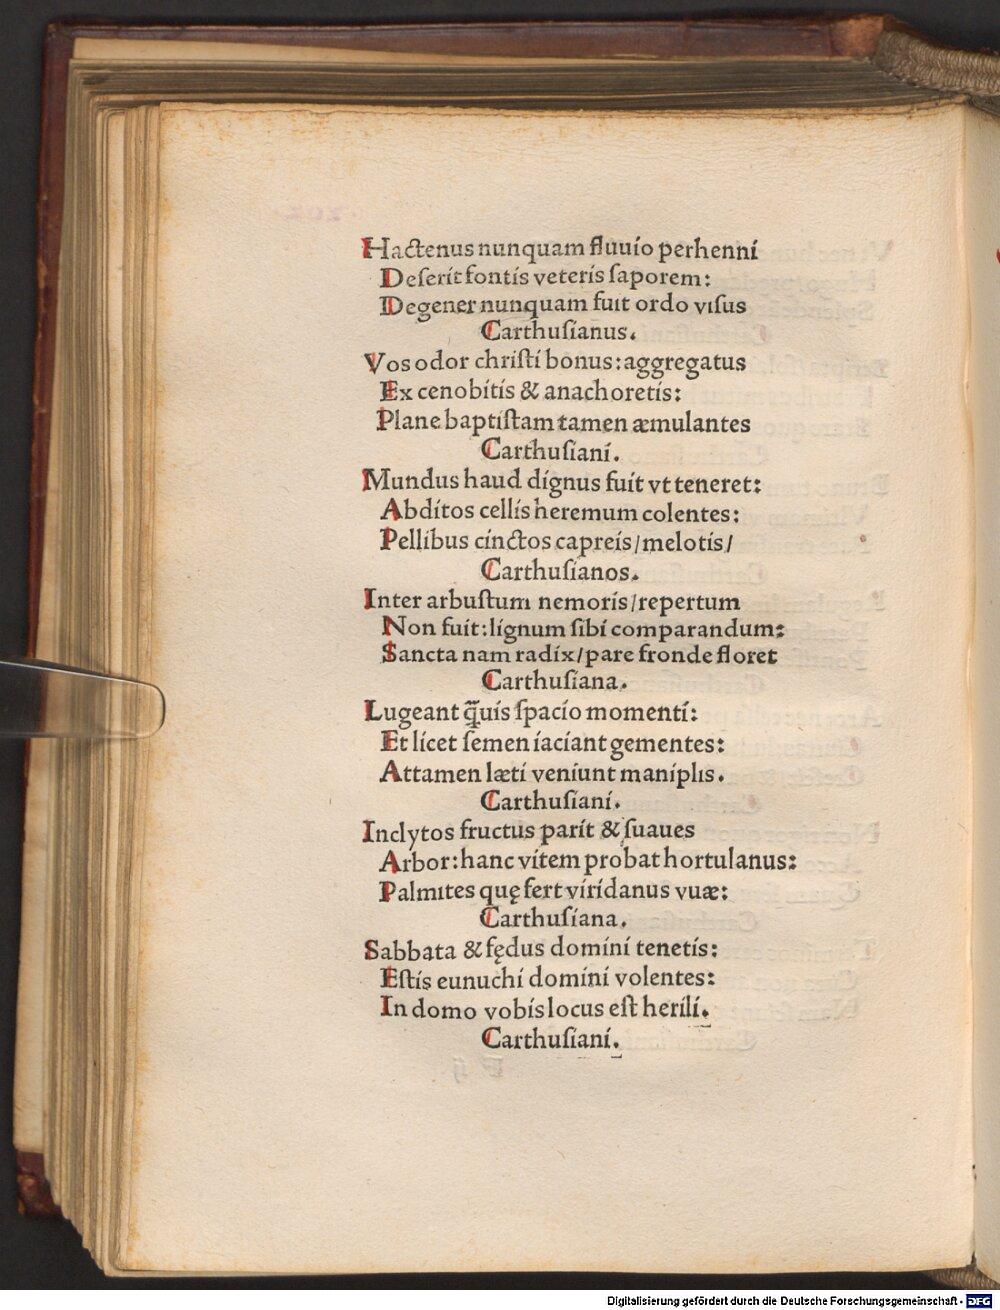 Hactenus nunquam fluuio perhenni
Deſerit fontis veteris ſaporem:
Degener nunquam fuit ordo viſus
Carthuſianus.
Vos odor chriſti bonus: aggregatus
Ex cenobitis & anachoretis:
Plane baptiſtam tamen æmulantes
Carthuſiani.
Mundus haud dignus fuit vt teneret:
Abditos cellis heremum colentes:
Pellibus cinctos capreis/melotis/
Carthuſianos.
Inter arbuſtum nemoris/repertum
Non fuit: lignum ſibi comparandum:
Sancta nam radix/pare fronde floret
Carthuſiana.
Lugeant q̃uis ſpacio momenti:
Et licet ſemen iaciant gementes:
Attamen læti veniunt maniplis.
Carthuſiani.
Inclytos fructus parit & ſuaues
Arbor: hanc vitem probat hortulanus:
Palmites quę fert viridanus vuæ:
Carthuſiana.
Sabbata & fędus domini tenetis:
Eſtis eunuchi domini volentes:
In domo vobis locus eſt herili.
Carthuſiani.
Digitalisierung gefördert durch die Deutsche Forschungsgemeinschaft - DFG